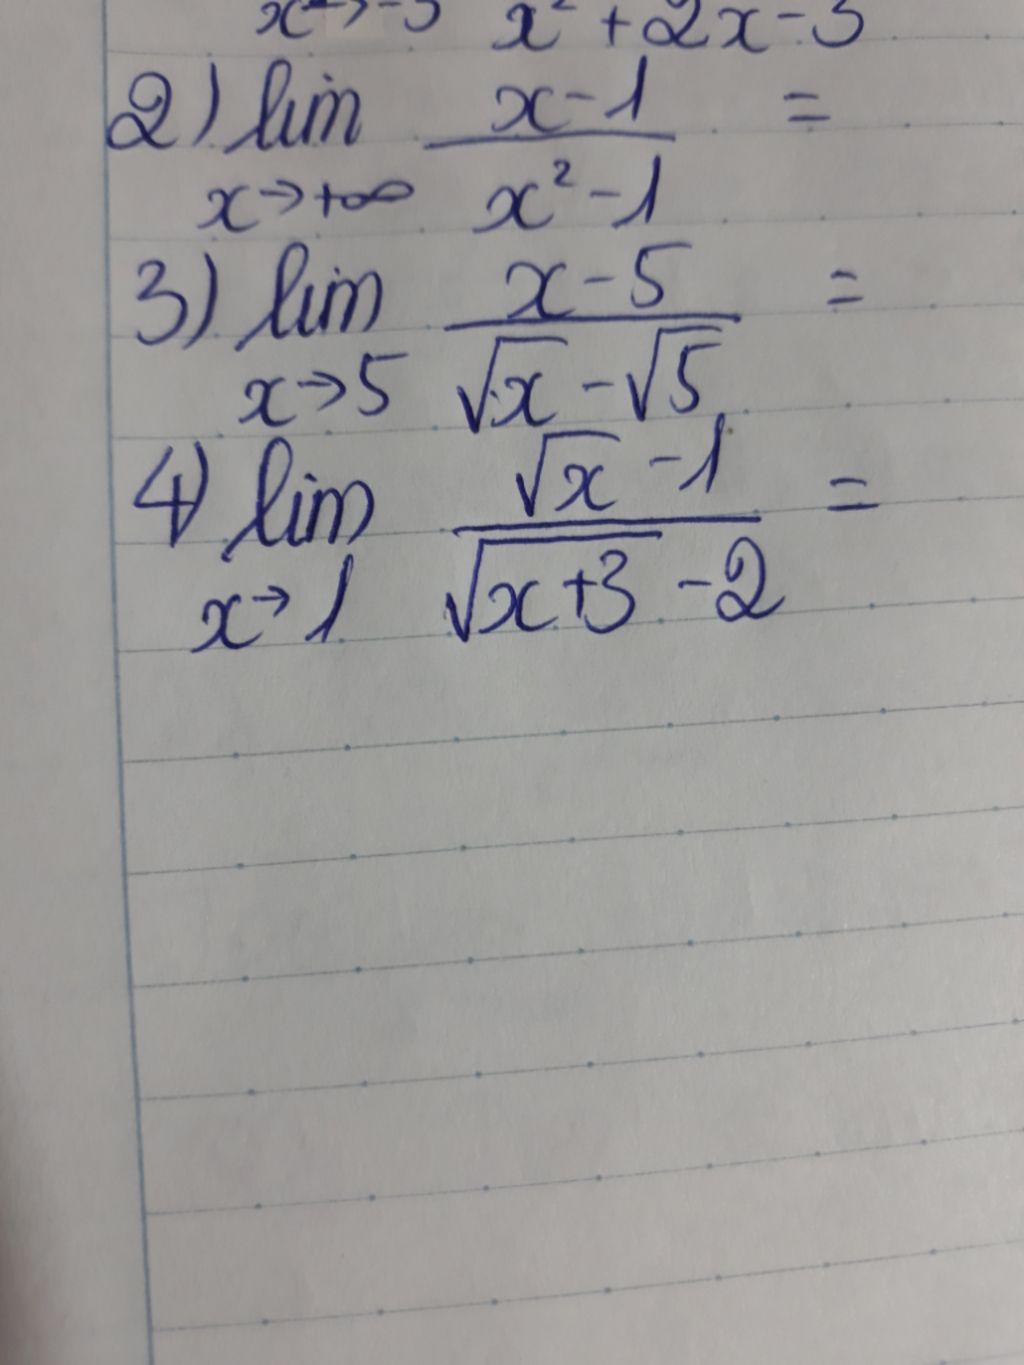 x→-3 x² + 2x - 3
2) lim x - 1 =
x→+∞ x² - 1
3) lim x - 5 =
x→5 √x - √5
4) lim √x - 1 =
x→1 √x+3 - 2